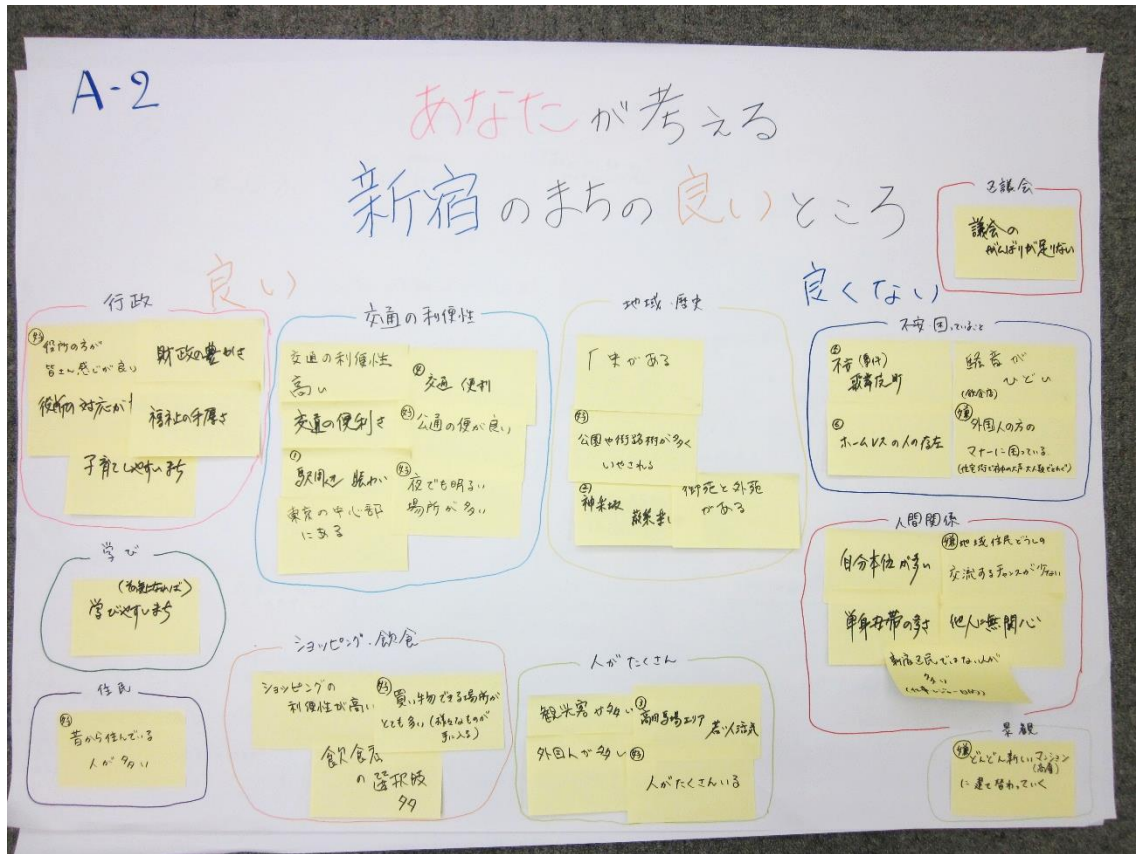 A-2
あなたが考える
新宿のまちの良いところ
良い
行政
役所の方が
皆さん感じが良い
財政の豊かさ
役所の対応が
福祉の手厚さ
子育てしやすいまち
学び
学びやすいまち
住民
昔から住んでいる
人が多い
交通の利便性
交通の利便性
高い
交通 便利
交通の便利さ
公通の便が良い
駅周辺 賑わい
夜でも明るい
場所が多い
東京の中心部
にある
ショッピング・飲食
ショッピングの
利便性が高い
買い物できる場所が
とても多い(様々なものが
手に入る)
飲食店
の選択肢
多
地域・歴史
史がある
公園や街路樹が多く
いやされる
神楽坂
散策
御苑と外苑
がある
人がたくさん
観光客が多い
高田馬場エリア
若い人
外国人が多い
人がたくさんいる
区議会
議会の
がんばりが足りない
良くない
不安・困っていること
不安
歌舞伎町
騒音が
ひどい
(飲食店)
ホームレスの人の存在
外国人の方の
マナーに困っている
人間関係
自分本位が多い
地域住民どうしの
交流するチャンスが少ない
単身世帯の多さ
他人に無関心
新宿区民ではない人が
多い
景観
どんどん新しいマンション
(高層)
に建て替わっていく